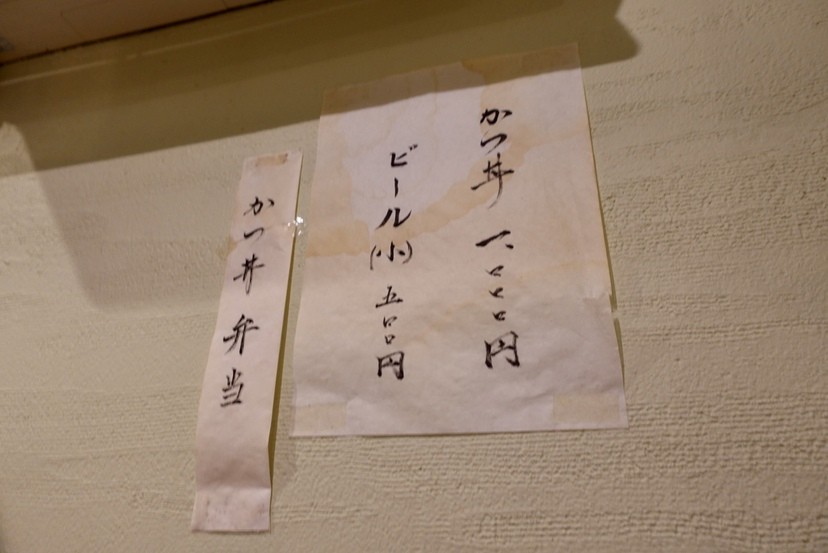 かつ丼 一、〇〇〇円
ビール(小) 五〇〇円
かつ丼 弁当